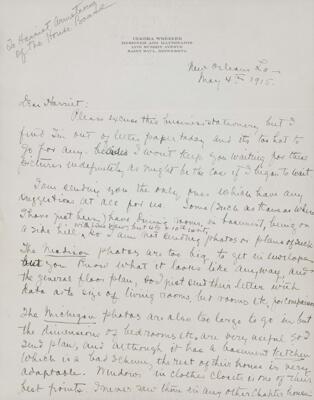 To Harriet Armstrong
of the House Board
CEKORA WHEELER
DESIGNER AND ILLUSTRATOR
MURRAY AVENUE
SAINT PAUL, MINNESOTA
New Orleans La-
May 4th 1915.
Dear Harriet:
Please excuse this business stationery but I
find I'm out of letter paper today and it's too hot to
go for any. Besides I won't keep you waiting for these
pictures indefinitely as might be the case if I began to wait
I am sending you the only ones which have any
suggestions at all for us. Some (such as those as where
I have just been) have dining rooms in basement, being on
a side hill, so I am not sending photos or plans of such
The Madison photos are too big to get in envelopes
but you know what it looks like anyway, and
the general floor plan, so I just send their letter with
data as to size of living rooms, bed rooms etc, for comparison
The Michigan photos are also too large to go in but
the dimensions of bed rooms etc. are very useful so I
send plan, and although it has a basement kitchen
(which is a bad scheme, the rest of their house is very
adaptable. Windows in clothes closets is one of their
best points. I never saw them in any other chapter house